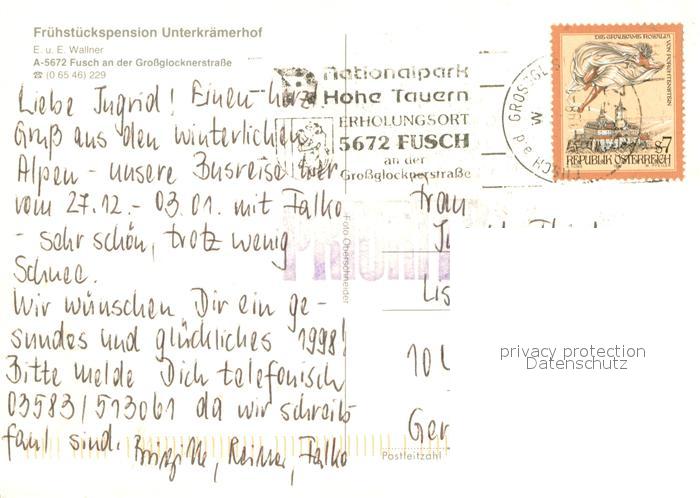 Frühstückspension Unterkrämerhof
E. u. E. Wallner
A-5672 Fusch an der Großglocknerstraße
☎ (0 65 46) 229
Liebe Ingrid! Einen herzl.
Gruß aus den winterlichen
Alpen - unsere Busreise hier
vom 27.12. - 03.01. mit Falko
- sehr schön, trotz wenig
Schnee.
Wir wünschen Dir ein ge-
sundes und glückliches 1998!
Bitte melde Dich telefonisch
03583/513061 da wir schreib-
faul sind.
Brigitte, Reiner, Falko
Nationalpark
Hohe Tauern
ERHOLUNGSORT
5672 FUSCH
an der
Großglocknerstraße
DIE GRAUSAME ROSALIA VON FORCHTENSTEIN
S7
REPUBLIK ÖSTERREICH
PRIORITY
Foto Oberschneider
Frau
Postleitzahl
privacy protection
Datenschutz